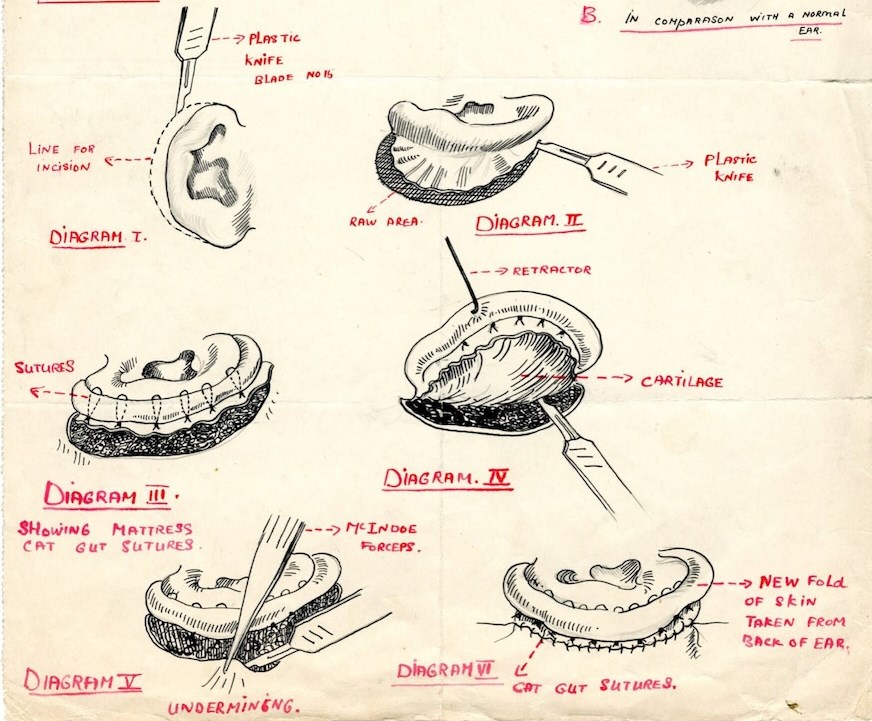 B. IN COMPARASON WITH A NORMAL
EAR.
PLASTIC
KNIFE
BLADE NO 15
LINE FOR
INCISION
DIAGRAM I.
PLASTIC
KNIFE
RAW AREA.
DIAGRAM. II
RETRACTOR
SUTURES
CARTILAGE
DIAGRAM III.
SHOWING MATTRESS
CAT GUT SUTURES.
DIAGRAM. IV
McINDOE
FORCEPS.
NEW FOLD
OF SKIN
TAKEN FROM
BACK OF EAR.
DIAGRAM V
UNDERMINING.
DIAGRAM VI
CAT GUT SUTURES.